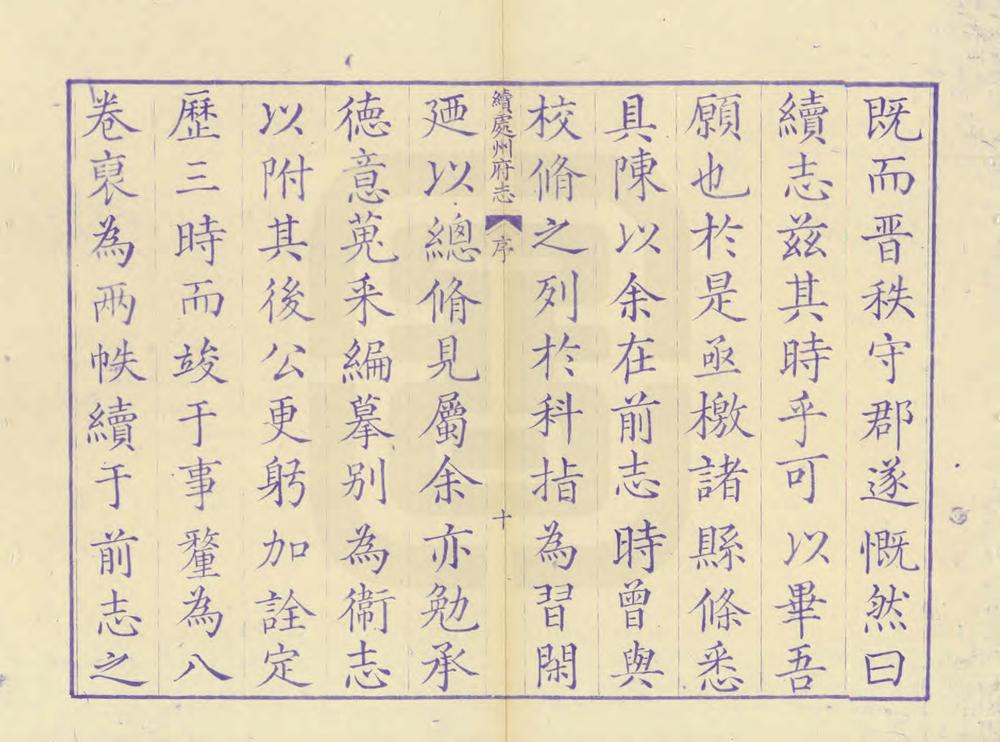 既而晋秩守郡遂慨然曰
續志茲其時乎可以畢吾
願也於是亟檄諸縣條悉
具陳以余在前志時曾與
校脩之列於科指為習閑
續處州府志 序 十
廼以總脩見屬余亦勉承
德意蒐采編摹别為衛志
以附其後公更躬加詮定
歷三時而竣于事釐為八
卷裒為兩帙續于前志之